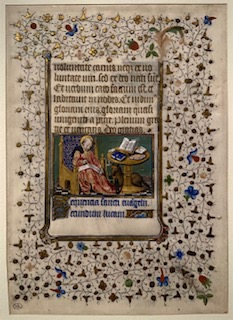 voluntate carnis neqz ex vo
luntate viri. sed ex deo nati sūt
Et verbum caro factum est. et
habitavit in nobis. Et vidim
gloriam eius. gloriam quasi
unigeniti a patre. plenum gra
tie et veritatis. Deo gratias
equencia sancti evangelii
secundum lucam